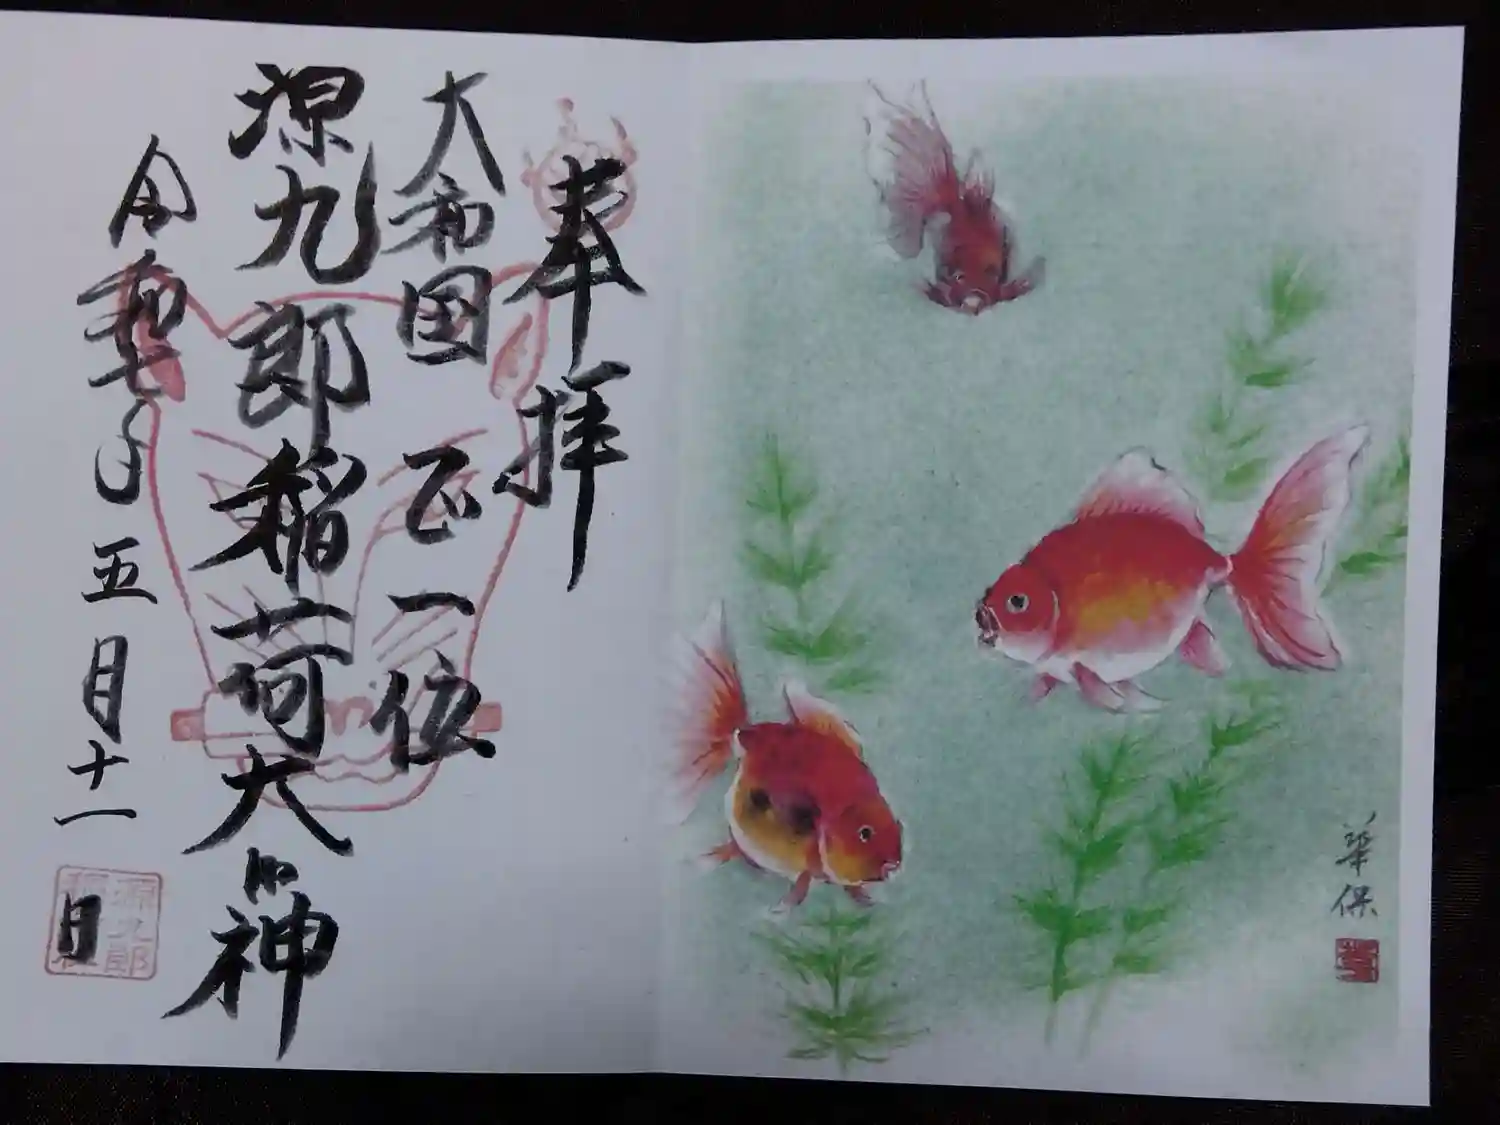 奉拝
大和国 正一位
源九郎稲荷大明神
令和七年五月十一日
源九郎
華保